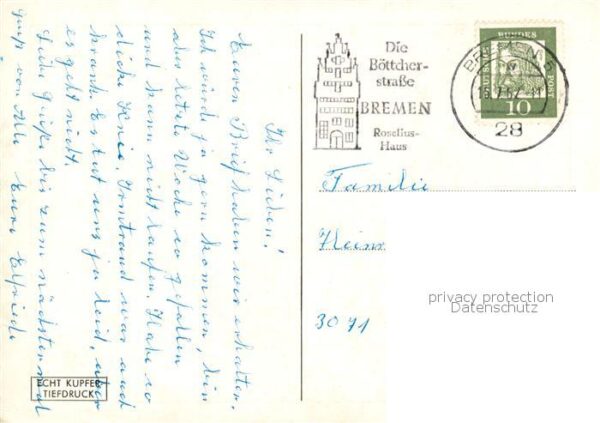 Ihr Lieben!
Euren Brief haben wir erhalten.
Ich würde ja gern kommen, bin
aber letzte Woche so gefallen
und kann nicht laufen. Habe so
dicke Knie. Irmtraud war auch
krank. Es tut uns ja leid, aber
es geht nicht.
Viele Grüße bis zum nächsten mal
Gruß von Alle Eure Elfriede
ECHT KUPFER
TIEFDRUCK
Die
Böttcher-
straße
BREMEN
Roselius-
Haus
BREMEN 5
28
DEUTSCHE BUNDESPOST
10
Familie
Heinr
3071
privacy protection
Datenschutz